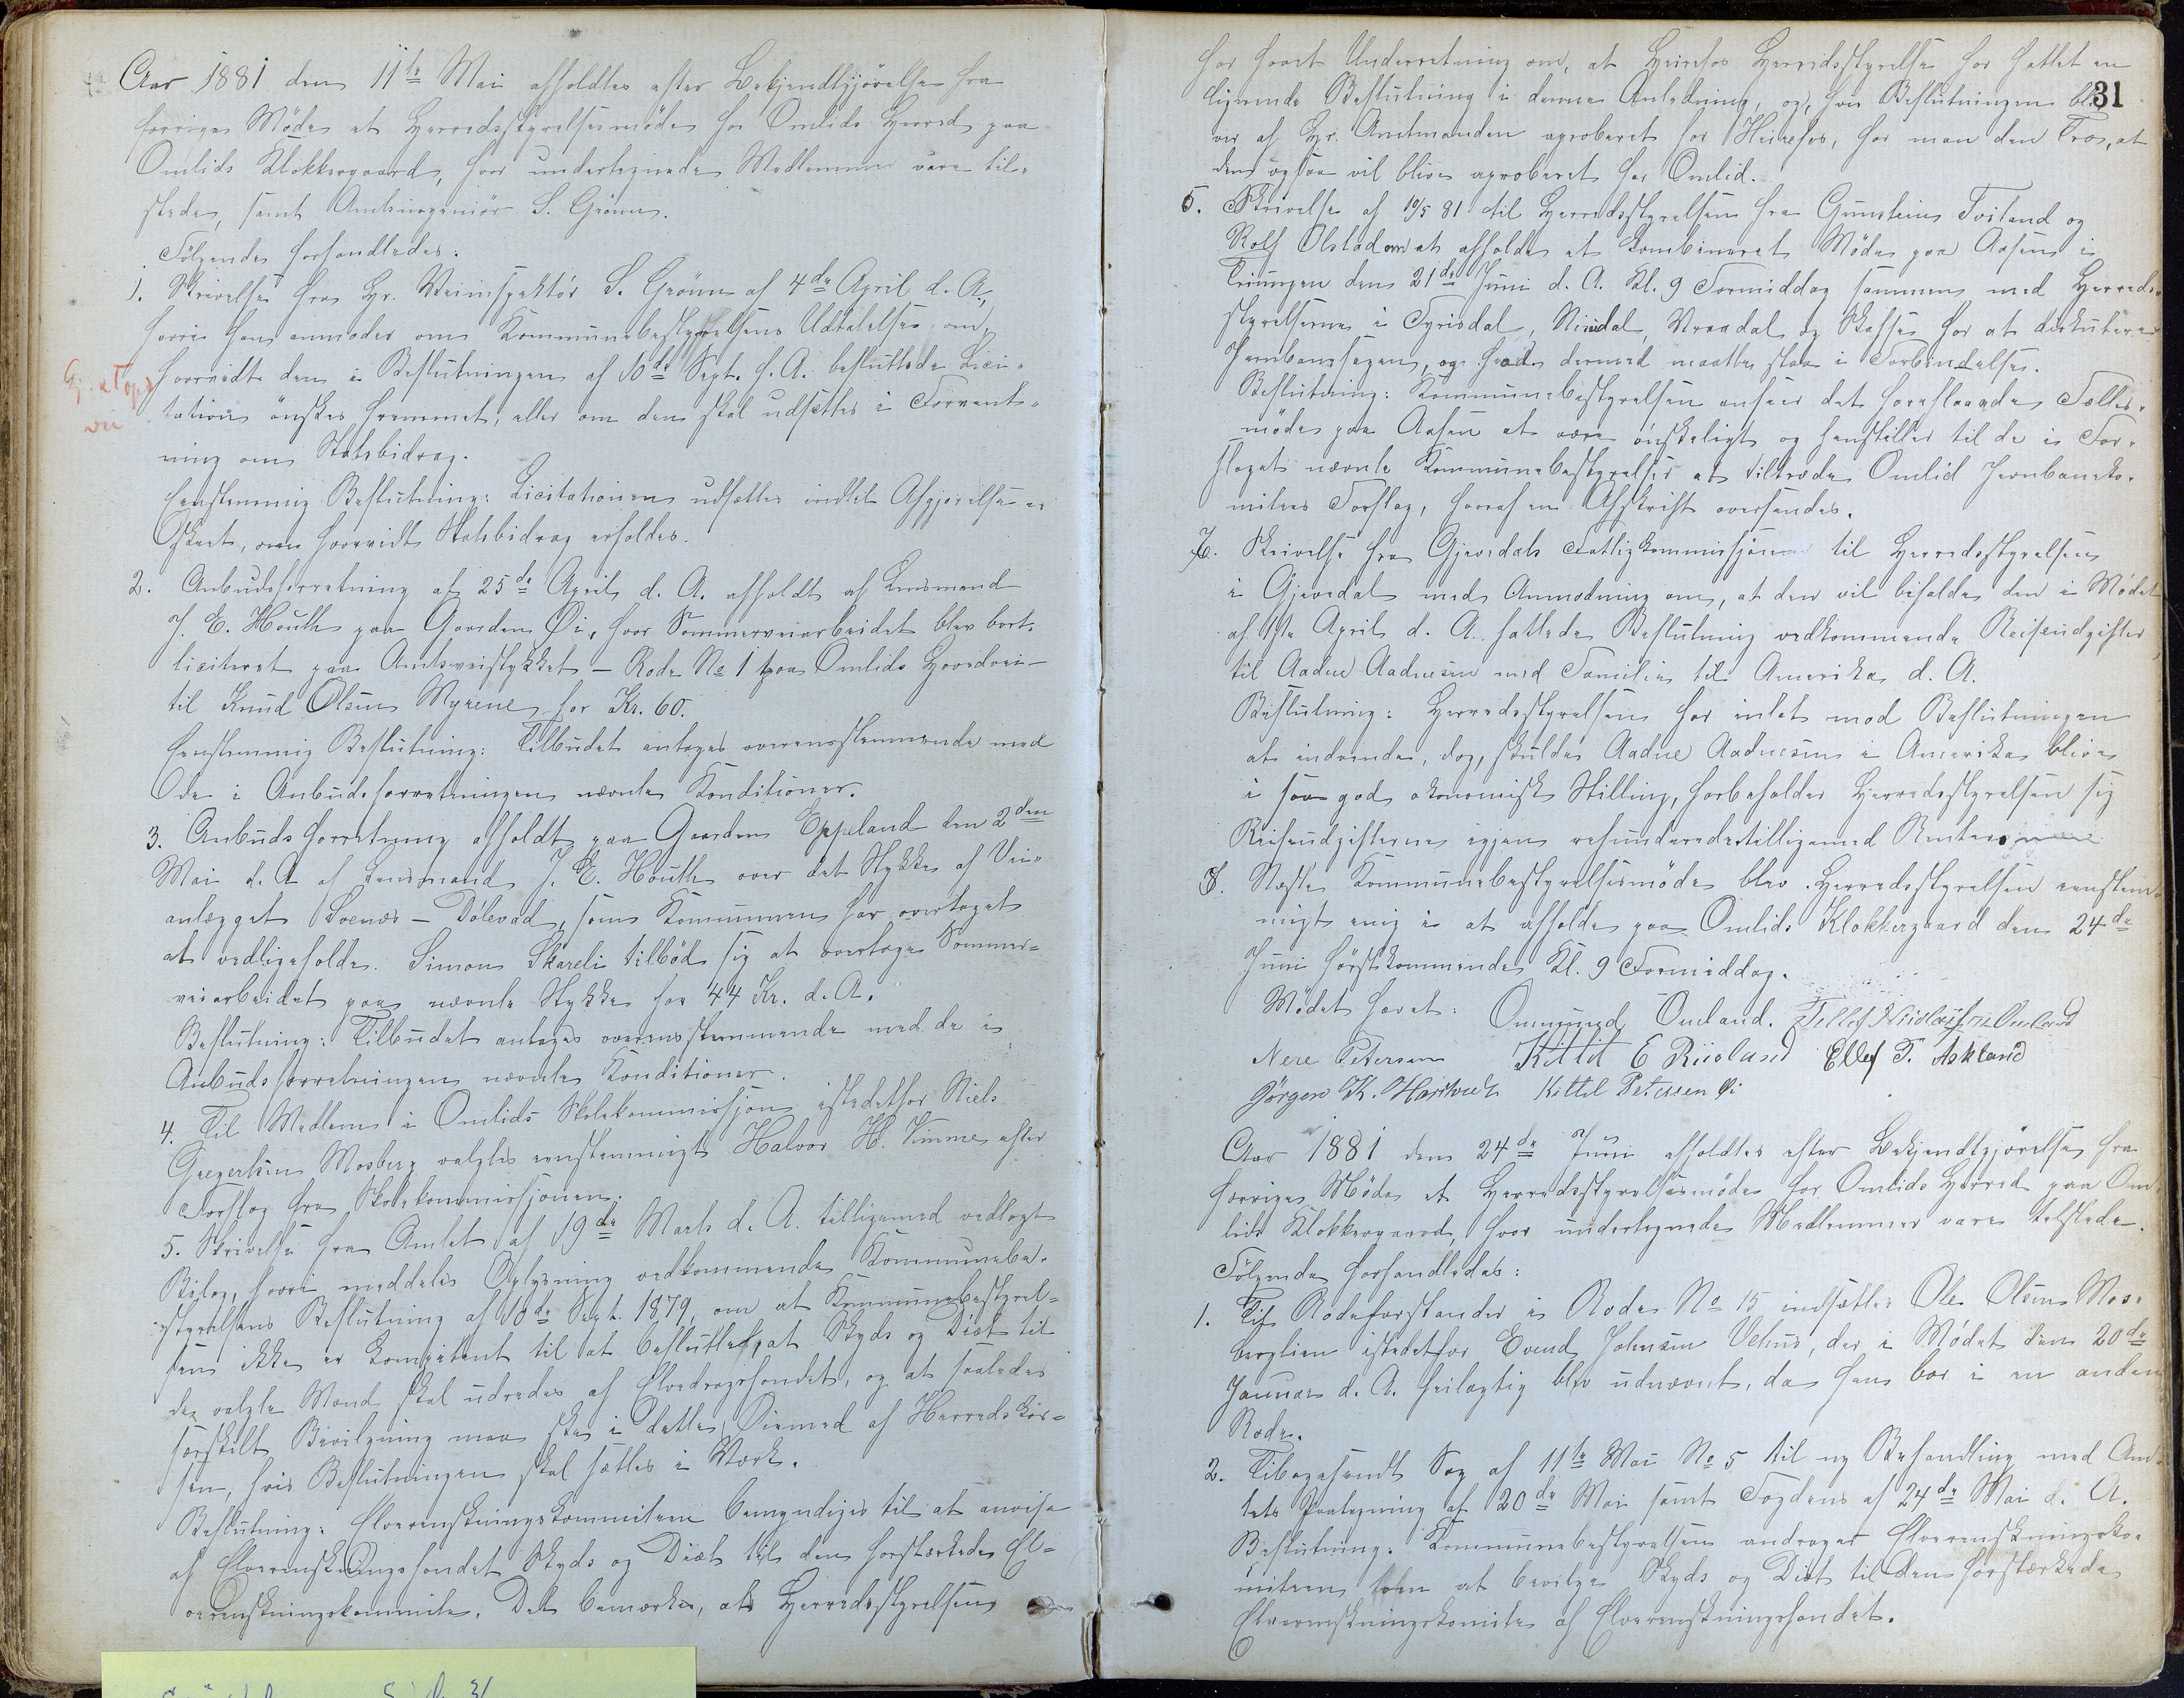 Aar 1881 den 11te Mai afholdtes efter Bekjendtgjörelse fra
forrige Möde et Herredsstyrelsesmöde for Omlids Herred paa
Omlids Klokkergaard, hvor undertegnede Medlemmer vare til-
stede, samt Amtsingeniör S. Grönn.
Fölgende forhandledes:
1. Skrivelse fra Hr. Veiinspektör S. Grönn af 4de April d. A.,
hvori han anmoder om Kommunebestyrelsens Udtalelse om,
hvorvidt den i Beslutningen af 10de Sept. f. A. besluttede Lici-
tation önskes fremmet, eller om den skal udsættes i Forvent-
ning om Statsbidrag.
Eenstemmig Beslutning: Licitationen udsættes indtil Afgjörelse er
skeet, om hvorvidt Statsbidrag erholdes.
2. Anbudsforretning af 25de April d. A. afholdt af Lensmand
J. E. Houth paa Gaarden Öi, hvor Sommerveiarbeidet blev bort-
liciteret paa Amtsveistykket – Rode No 1 paa Omlids Hovedvei –
til Knud Olsen Myrene for Kr. 60.
Eenstemmig Beslutning: Tilbudet antages overensstemmende med
de i Anbudsforretningen nævnte Konditioner.
3. Anbudsforretning afholdt paa Gaarden Eppeland den 2den
Mai d. A. af Lensmand J. E. Houth over det Stykke af Vei-
anlægget Svenæs – Dölevad, som Kommunen har overtaget
at vedligeholde. Simon Skareli tilböd sig at overtage Sommer-
veiarbeidet paa nævnte Stykke for 44 Kr. d. A.
Beslutning: Tilbudet antages overensstemmende med de i
Anbudsforretningen nævnte Konditioner.
4. Til Medlem i Omlids Skolekommissjon istedetfor Niels
Gregersen Mosberg valgtes eenstemmigt Halvor H. Vimme efter
Forslag fra Skolekommissjonen.
5. Skrivelse fra Amtet af 19de Marts d. A. tilligemed vedlagt
Bilag, hvori meddeles Oplysning vedkommende Kommunebe-
styrelsens Beslutning af 10de Sept. 1879, om at Kommunebestyrel-
sen ikke er kompetent til at beslutte, at Skyds og Diæt til
den valgte Mand skal udredes af Elvedragsfondet, og at saaledes
særskilt Bevilgning maa ske i dette Öiemed af Herredskas-
sen, hvis Beslutningen skal sættes i Værk.
Beslutning: Elverenskningskommiteen bemyndiges til at anvise
af Elverenskningsfondet Skyds og Diæt til den forstærkede El-
verenskningskommite. Det bemærkes, at Herredsstyrelsen
G. at Ops
vei
31
har faaet Underretning om, at Hereføs Herredsstyrelse har fattet en
lignende Beslutning i denne Anledning, og, hvis Beslutningen bli-
ver af Hr. Amtmanden aproberet for Hereføs, har man den Tro, at
den ogsaa vil blive aproberet for Omlid.
5. Skrivelse af 10/5 81 til Herredsstyrelsen fra Gunstein Tveitand og
Rolf Olstad om at afholde et kombineret Möde paa Aasen i
Triungen den 21de Juni d. A. Kl. 9 Formiddag sammen med Herreds-
styrelserne i Fyrisdal, Nissedal, Vraadal og Skafse for at diskutere
Jernbanesagen, og hvad dermed maatte staa i Forbindelse.
Beslutning: Kommunebestyrelsen anseer det foreslaaede Fælles-
möde paa Aasen at være önskeligt og henstiller til de i For-
slaget nævnte Kommunebestyrelser at tiltræde Omlid Jernbaneko-
mitees Forslag, hvoraf en Afskrift oversendes.
7. Skrivelse fra Gjevedals Fattigkommissjon til Herredsstyrelsen
i Gjevedal med Anmodning om, at den vil bifalde den i Mödet
af 1ste April d. A. fattede Beslutning vedkommende Reiseudgifter
til Aadne Aadnesen med Familie til Amerika d. A.
Beslutning: Herredsstyrelsen har intet mod Beslutningen
at indvende, dog, skulde Aadne Aadnesen i Amerika blive
i saa god ökonomisk Stilling, forbeholder Herredsstyrelsen sig
Reiseudgifterne igjen refunderede tilligemed Renter.
8. Næste Kommunebestyrelsesmöde blev Herredsstyrelsen eenstem-
migt enig i at afholde paa Omlids Klokkergaard den 24de
Juni förstkommende Kl. 9 Formiddag.
Mödet hævet: Ommund Omland. Tellef Nicolaisen Omland
Nere Petersen Kittil E Riisland Ellef T. Askland
Jörgen K. Hartveit Kittel Petersen Öi
Aar 1881 den 24de Juni afholdtes efter Bekjendtgjörelse fra
forrige Möde et Herredsstyrelsesmöde for Omlids Herred paa Om-
lids Klokkergaard, hvor undertegnede Medlemmer vare tilstede.
Fölgende forhandledes:
1. Til Rodeforstander i Rode No 15 indsættes Ole Olsen Mos-
berglien istedetfor Evend Johnsen Vehus, der i Mödet den 20de
Januar d. A. feilagtig blev udnævnt, da han bor i en anden
Rode.
2. Tilbagesendt Sag af 11te Mai No 5 til ny Behandling med Am-
tets Paategning af 20de Mai samt Fogdens af 24de Mai d. A.
Beslutning: Kommunebestyrelsen andrager Elverenskningsko-
miteen om at bevilge Skyds og Diæt til den forstærkede
Elverenskningskomite af Elverenskningsfondet.